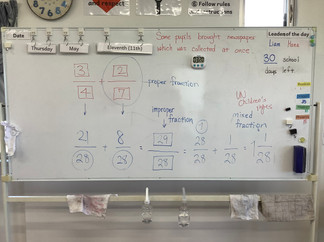 and respect
② Follow rules
Date
Thursday
May
Eleventh (11th)
Some pupils brought newspaper
which was collected at once.
Leaders of the day
Liam Hana
30 school
days left
3/4 + 2/7
proper fraction
improper
fraction
mixed
fraction
21/28 + 8/28 = 29/28 = 28/28 + 1/28 = 1 1/28